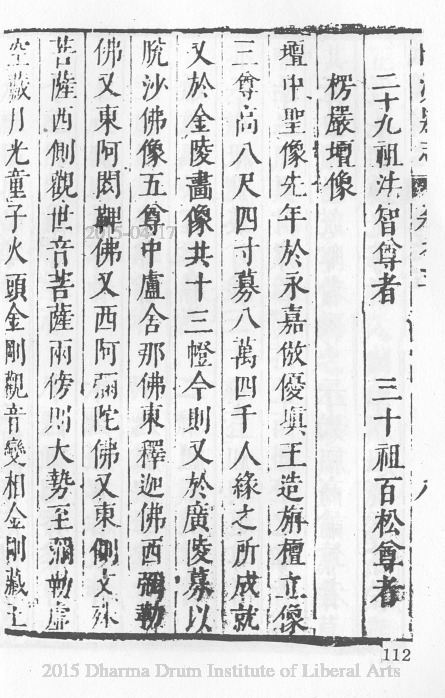 二十九祖法智尊者 三十祖百松尊者
楞嚴壇像
壇中聖像先年於永嘉倣優塡王造旃檀立像
三尊高八尺四寸募八萬四千人緣之所成就
又於金陵畵像共十三幢今則又於廣陵募以
脫沙佛像五尊中盧舍那佛東釋迦佛西彌勒
佛又東阿閦鞞佛又西阿彌陀佛又東側文殊
菩薩西側觀世音菩薩兩傍則大勢至彌勒虛
空藏月光童子火頭金剛觀音變相金剛藏王
2015-04-17
112
2015 Dharma Drum Institute of Liberal Arts